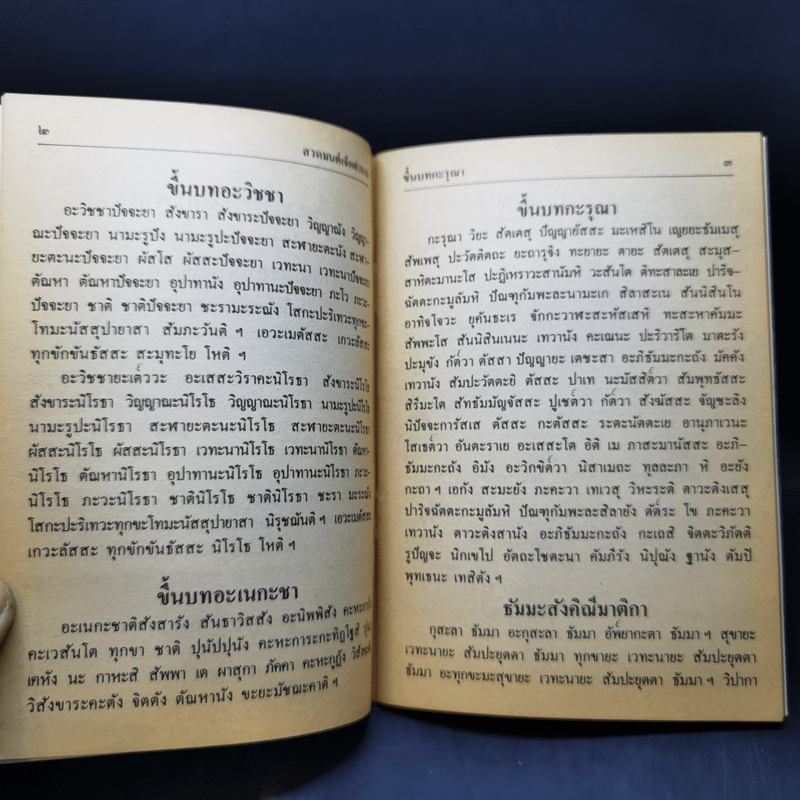 ๒
สวดมนต์เจ็ดตำนาน
ขึ้นบทอะวิชชา
อะวิชชาปัจจะยา สังขารา สังขาระปัจจะยา วิญญาณัง วิญญา-
ณะปัจจะยา นามะรูปัง นามะรูปะปัจจะยา สะฬายะตะนัง สะฬา-
ยะตะนะปัจจะยา ผัสโส ผัสสะปัจจะยา เวทะนา เวทะนาปัจจะยา
ตัณหา ตัณหาปัจจะยา อุปาทานัง อุปาทานะปัจจะยา ภะโว ภะวะ-
ปัจจะยา ชาติ ชาติปัจจะยา ชะรามะระณัง โสกะปะริเทวะทุกขะ-
โทมะนัสสุปายาสา สัมภะวันติ ฯ เอวะเมตัสสะ เกวะลัสสะ
ทุกขักขันธัสสะ สะมุทะโย โหติ ฯ
อะวิชชายะเต๎ววะ อะเสสะวิราคะนิโรธา สังขาระนิโรโธ
สังขาระนิโรธา วิญญาณะนิโรโธ วิญญาณะนิโรธา นามะรูปะนิโรโธ
นามะรูปะนิโรธา สะฬายะตะนะนิโรโธ สะฬายะตะนะนิโรธา
ผัสสะนิโรโธ ผัสสะนิโรธา เวทะนานิโรโธ เวทะนานิโรธา ตัณหา-
นิโรโธ ตัณหานิโรธา อุปาทานะนิโรโธ อุปาทานะนิโรธา ภะวะ-
นิโรโธ ภะวะนิโรธา ชาตินิโรโธ ชาตินิโรธา ชะรา มะระณัง
โสกะปะริเทวะทุกขะโทมะนัสสุปายาสา นิรุชฌันติ ฯ เอวะเมตัสสะ
เกวะลัสสะ ทุกขักขันธัสสะ นิโรโธ โหติ ฯ
ขึ้นบทอะเนกะชา
อะเนกะชาติสังสารัง สันธาวิสสัง อะนิพพิสัง คะหะการัง
คะเวสันโต ทุกขา ชาติ ปุนัปปุนัง คะหะการะกะทิฏโฐสิ ปุนะ
เคหัง นะ กาหะสิ สัพพา เต ผาสุกา ภัคคา คะหะกูฏัง วิสังขะตัง
วิสังขาระคะตัง จิตตัง ตัณหานัง ขะยะมัชฌะคาติ ฯ
ขึ้นบทกะรุณา
๓
ขึ้นบทกะรุณา
กะรุณา วิยะ สัตเตสุ ปัญญายัสสะ มะเหสิโน เญยยะธัมเมสุ
สัพเพสุ ปะวัตติตถะ ยะถารุจิง ทะยายะ ตายะ สัตเตสุ สะมุส-
สาหิตะมานะโส ปะฏิเหราวะสานัมหิ วะสันโต ติทะสาละเย ปาริจ-
ฉัตตะกะมูลัมหิ ปัณฑุกัมพะละนามะเก สิลาสะเน สันนิสินโน
อาทิจโจวะ ยุคันธะเร จักกะวาฬะสะหัสเสหิ ทะสะหาคัมมะ
สัพพะโส สันนิสินเนนะ เทวานัง คะเณนะ ปะริวาริโต มาตะรัง
ปะมุขัง กัต๎วา ตัสสา ปัญญายะ เตชะสา อะภิธัมมะกะถัง มัคคัง
เทวานัง สัมปะวัตตะยิ ตัสสะ ปาเท นะมัสสิต๎วา สัมพุทธัสสะ
สิรีมะโต สัทธัมมัญจัสสะ ปูเชต๎วา กัต๎วา สังฆัสสะ จัญชะลิง
นิปัจจะการัสเส ตัสสะ กะตัสสะ ระตะนัตตะเย อานุภาเวนะ
โสเธต๎วา อันตะราเย อะเสสะโต อิติ เม ภาสะมานัสสะ อะภิ-
ธัมมะกะถัง อิมัง อะวิกขิต๎วา นิสาเมถะ ทุลละภา หิ อะยัง
กะถา ฯ เอกัง สะมะยัง ภะคะวา เทเวสุ วิหะระติ ตาวะติงเสสุ
ปาริจฉัตตะกะมูลัมหิ ปัณฑุกัมพะละสิลายัง ตัต๎ระ โข ภะคะวา
เทวานัง ตาวะติงสานัง อะภิธัมมะกะถัง กะเถสิ จิตตะวิภัตติ
รูปัญจะ นิกเขโป อัตถะโชตะนา คัมภีรัง นิปุณัง ฐานัง ตัมปิ
พุทเธนะ เทสิตัง ฯ
ธัมมะสังคิณีมาติกา
กุสะลา ธัมมา อะกุสะลา ธัมมา อัพ๎ยากะตา ธัมมา ฯ สุขายะ
เวทะนายะ สัมปะยุตตา ธัมมา ทุกขายะ เวทะนายะ สัมปะยุตตา
ธัมมา อะทุกขะมะสุขายะ เวทะนายะ สัมปะยุตตา ธัมมา ฯ วิปากา